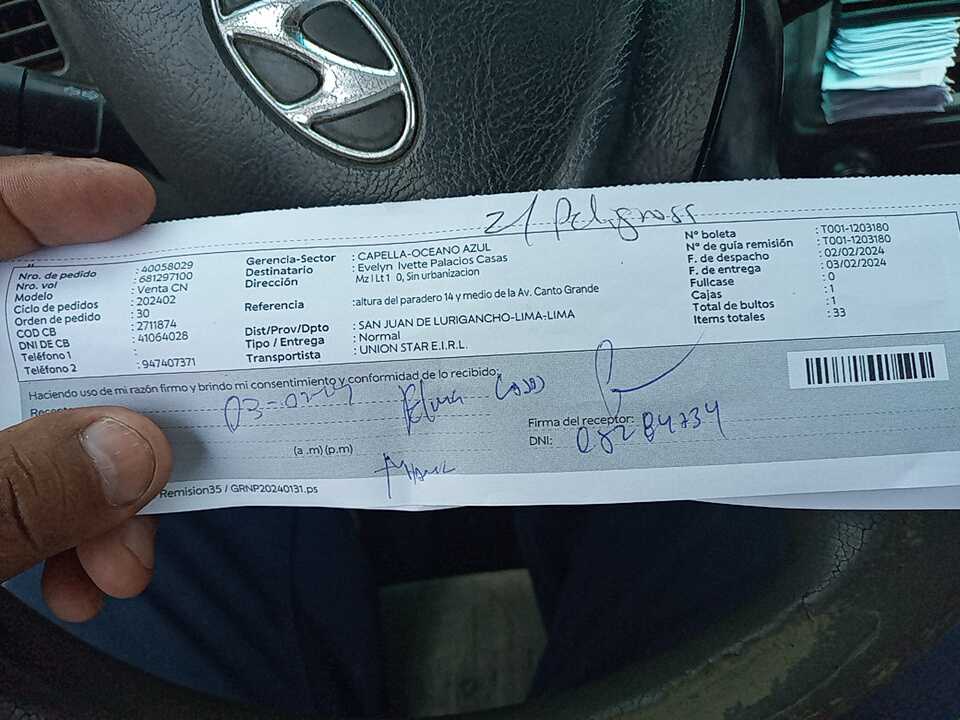 21 Peligross
Nro. de pedido : 40058029
Nro. vol : 681297100
Modelo : Venta CN
Ciclo de pedidos : 202402
Orden de pedido : 30
COD CB : 2711874
DNI DE CB : 41064028
Teléfono 1 :
Teléfono 2 : 947407371
Gerencia-Sector : CAPELLA-OCEANO AZUL
Destinatario : Evelyn Ivette Palacios Casas
Dirección Mz I Lt 1 0, Sin urbanizacion
Referencia :altura del paradero 14 y medio de la Av. Canto Grande
Dist/Prov/Dpto : SAN JUAN DE LURIGANCHO-LIMA-LIMA
Tipo / Entrega : Normal
Transportista : UNION STAR E.I.R.L.
N° boleta : T001-1203180
N° de guía remisión : T001-1203180
F. de despacho : 02/02/2024
F. de entrega : 03/02/2024
Fullcase : 0
Cajas : 1
Total de bultos : 1
Items totales : 33
Haciendo uso de mi razón firmo y brindo mi consentimiento y conformidad de lo recibido:
(a .m) (p.m)
Firma del receptor:
DNI: 08284734
Remision35 / GRNP20240131.ps